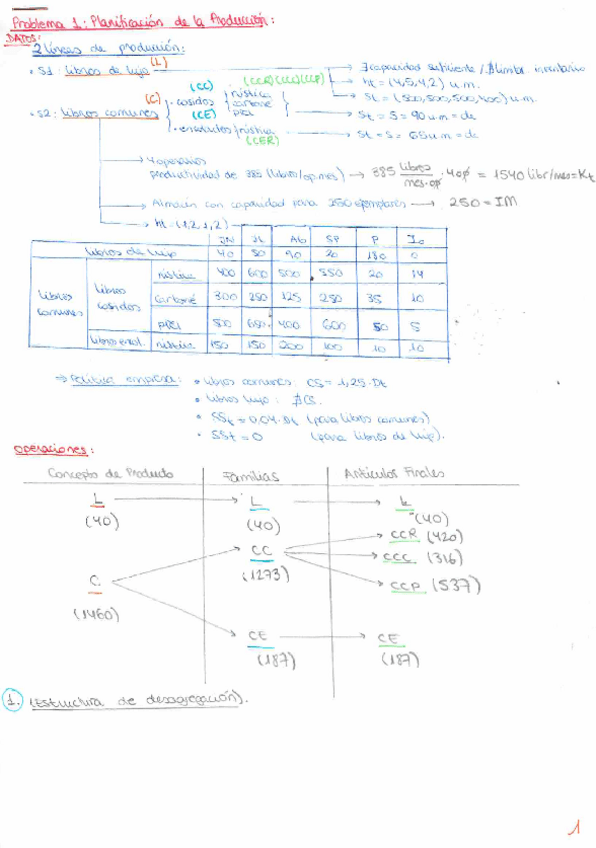 Problema 1: Planificación de la Producción:
DATOS:
2 líneas de producción:
(L)
• S1: Libros de lujo → ∃ capacidad suficiente / ∄ límite inventario
→ ht = (4,5,4,2) u.m.
→ St = (500,500,500,400) u.m.
(CC) (CCR)(CCC)(CCP)
• S2: Libros comunes (C)
• cosidos { rústica
cartoné
piel → St = S = 90 u.m = dc
(CE)
• encolados / rústica → St = S = 65 u.m = dc
(CER)
→ 4 operarios
productividad de 385 (libros/op.mes) → 385 libros/mes·op · 4 op = 1540 libr/mes = Kt
→ Almacén con capacidad para 250 ejemplares → 250 = IM
→ ht = (1,2,1,2)
JN JL Ag SP P Io
Libros de lujo 40 50 90 20 180 0
Libros comunes Libros cosidos rústica 400 600 500 550 20 14
cartoné 300 250 125 250 35 10
piel 500 650 400 600 50 5
Libros encol. rústica 150 150 200 100 10 10
⇒ Política empresa: • Libros comunes: CS = 1,25·Dt
• Libros lujo: ∄ CS.
• SSt = 0,04·Dt (para libros comunes)
• SSt = 0 (para libros de lujo).
Operaciones:
Concepto de Producto Familias Artículos Finales
L L L
(40) (40) (40)
CCR (420)
CC CCC (316)
C (1273) CCP (537)
(1460)
CE CE
(187) (187)
1. (Estructura de desagregación).
1